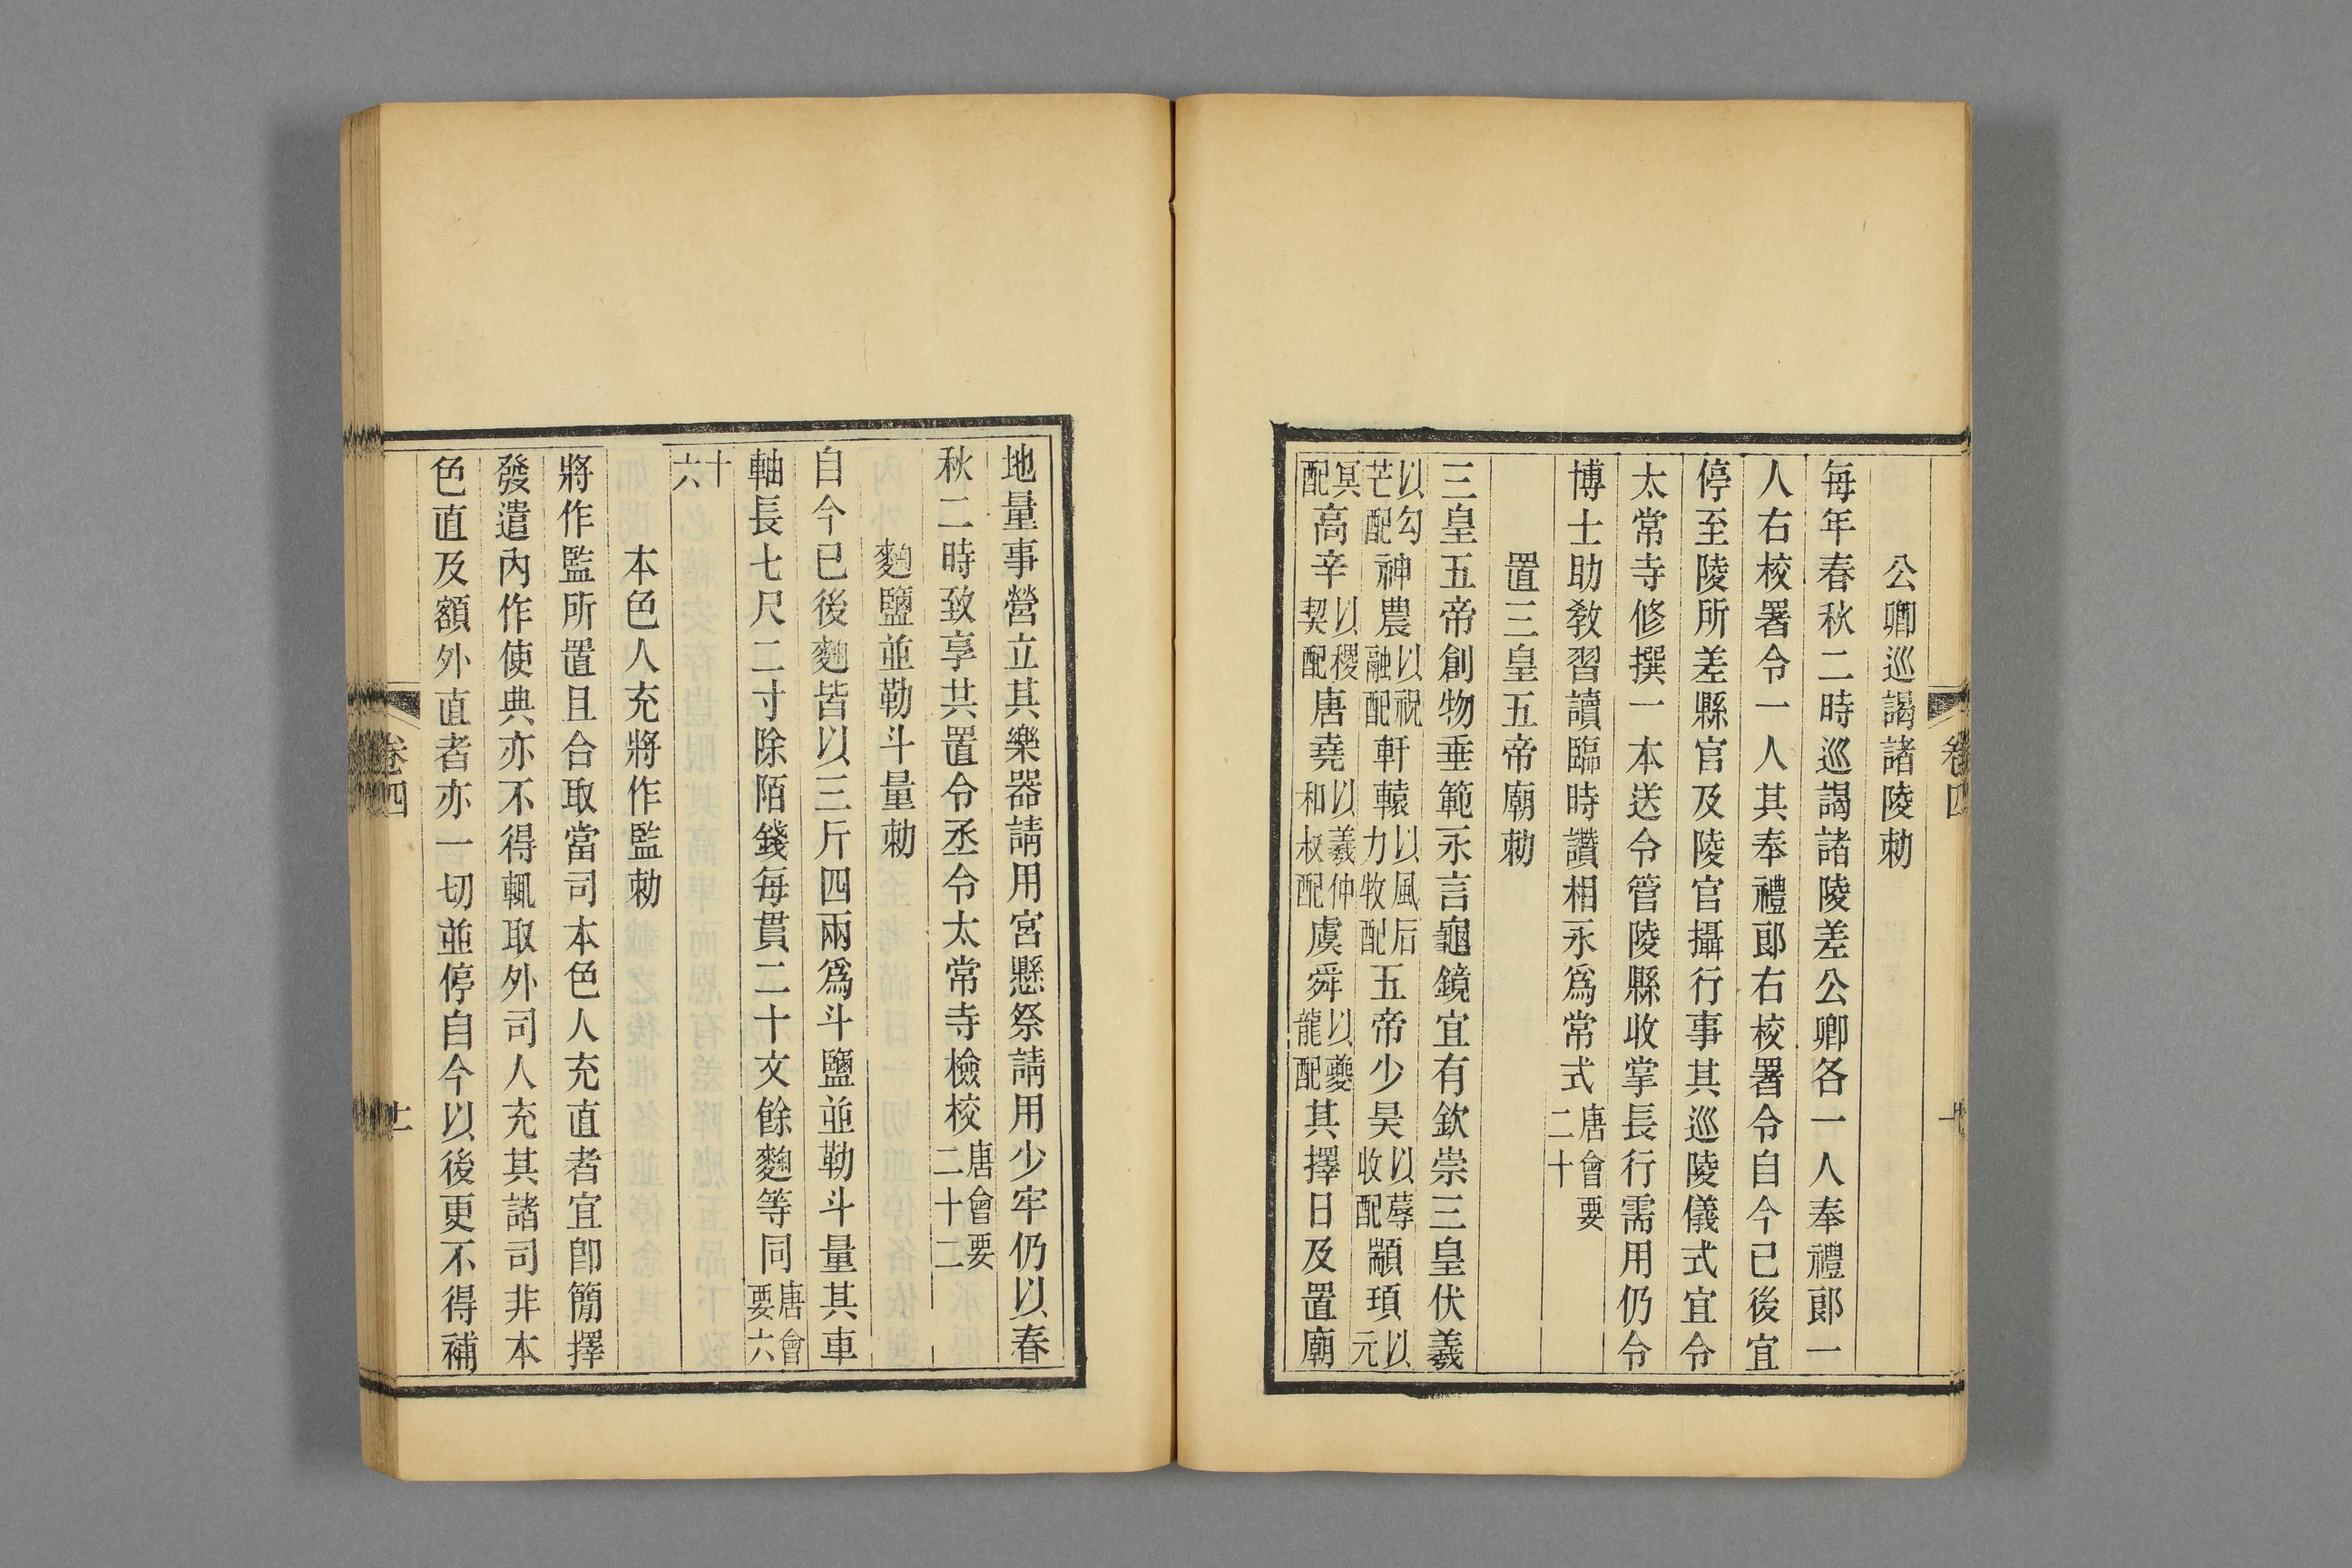 公卿巡謁諸陵勅
每年春秋二時巡謁諸陵差公卿各一人奉禮郎一
人右校署令一人其奉禮郎右校署令自今已後宜
停至陵所差縣官及陵官攝行事其巡陵儀式宜令
太常寺修撰一本送令管陵縣收掌長行需用仍令
博士助敎習讀臨時讚相永爲常式唐會要二十
置三皇五帝廟勅
三皇五帝創物垂範永言龜鏡宜有欽崇三皇伏羲
以勾芒配神農以祝融配軒轅以風后力牧配五帝少昊以蓐收配顓頊以元
冥配高辛以稷契配唐堯以羲仲和叔配虞舜以夔龍配其擇日及置廟
卷四
地量事營立其樂器請用宮懸祭請用少牢仍以春
秋二時致享共置令丞令太常寺檢校唐會要二十二
麴鹽並勒斗量勅
自今已後麴皆以三斤四兩爲斗鹽並勒斗量其車
軸長七尺二寸除陌錢每貫二十文餘麴等同唐會要六
十六
本色人充將作監勅
將作監所置且合取當司本色人充直者宜卽簡擇
發遣內作使典亦不得輒取外司人充其諸司非本
色直及額外直者亦一切並停自今以後更不得補
卷四